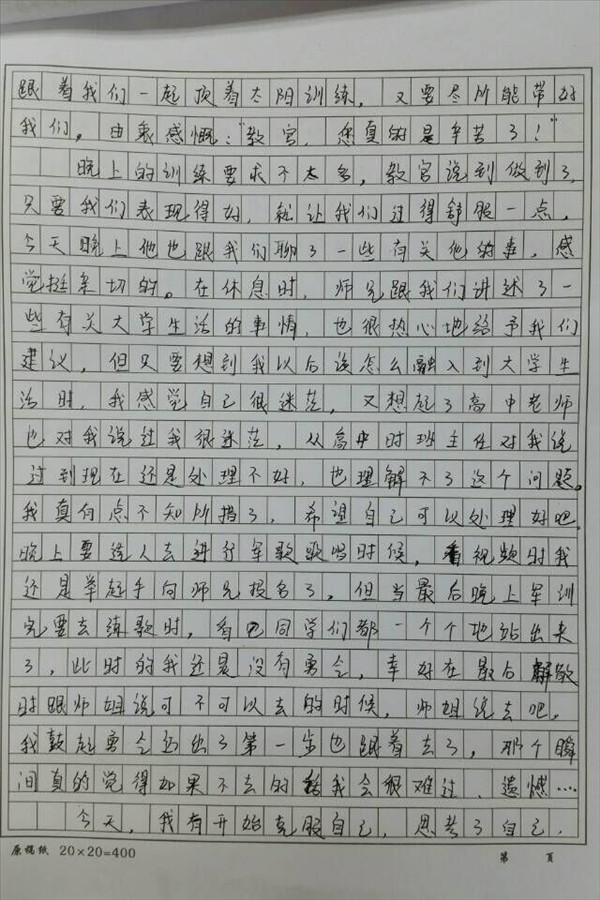 跟着我们一起顶着太阳训练，又要尽所能带好
我们。由衷感慨："教官，您真的是辛苦了！"
晚上的训练要求不太多，教官说到做到了，
只要我们表现得好，就让我们过得舒服一点，
今天晚上他也跟我们聊了一些有关他的事，感
觉挺亲切的。在休息时，师兄跟我们讲述了一
些有关大学生活的事情，也很热心地给予我们
建议，但只要想到我以后该怎么融入到大学生
活时，我感觉自己很迷茫，又想起了高中老师
也对我说过我很迷茫，从高中时班主任对我说
过到现在还是处理不好，也理解不了这个问题。
我真有点不知所措了，希望自己可以处理好吧。
晚上要选人去进行军歌歌唱时候，看视频时我
还是举起手向师兄报名了，但当最后晚上军训
完要去练歌时，看见同学们都一个个地站出来
了，此时的我还是没有勇气，幸好在最后解散
时跟师姐说可不可以去的时候，师姐说去吧，
我鼓起勇气迈出了第一步也跟着去了，那个瞬
间真的觉得如果不去的话我会很难过、遗憾…
今天，我有开始克服自己，思考了自己，
原稿纸 20×20=400 第 页